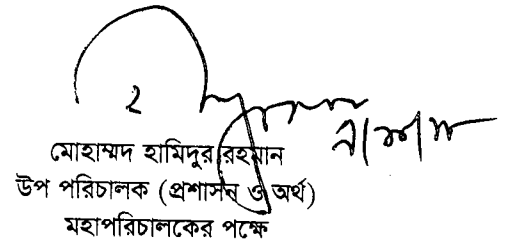 মোহাম্মদ হামিদুর রহমান
উপ পরিচালক (প্রশাসন ও অর্থ)
মহাপরিচালকের পক্ষে